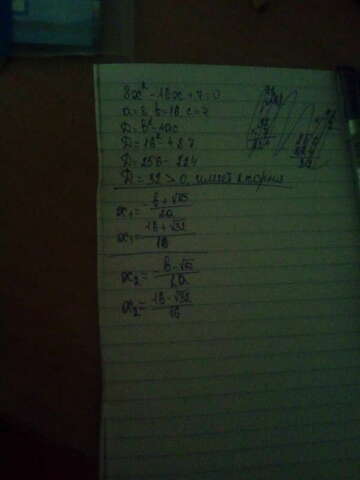 8x² - 16x + 7 = 0
a = 8, b = 16, c = 7
D = b² - 4ac
D = 16²
D = 256 - 224
D = 32 > 0, имеет 2 корня
x₁ = -b + √D / 2a
x₁ = 16 + √32 / 16
x₂ = -b - √D / 2a
x₂ = 16 - √32 / 16